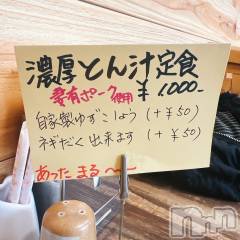 濃厚とん汁定食
妻有ポーク使用 ¥1,000-
自家製ゆずこしょう (+¥50)
ネギだく出来ます (+¥50)
あったまる〜